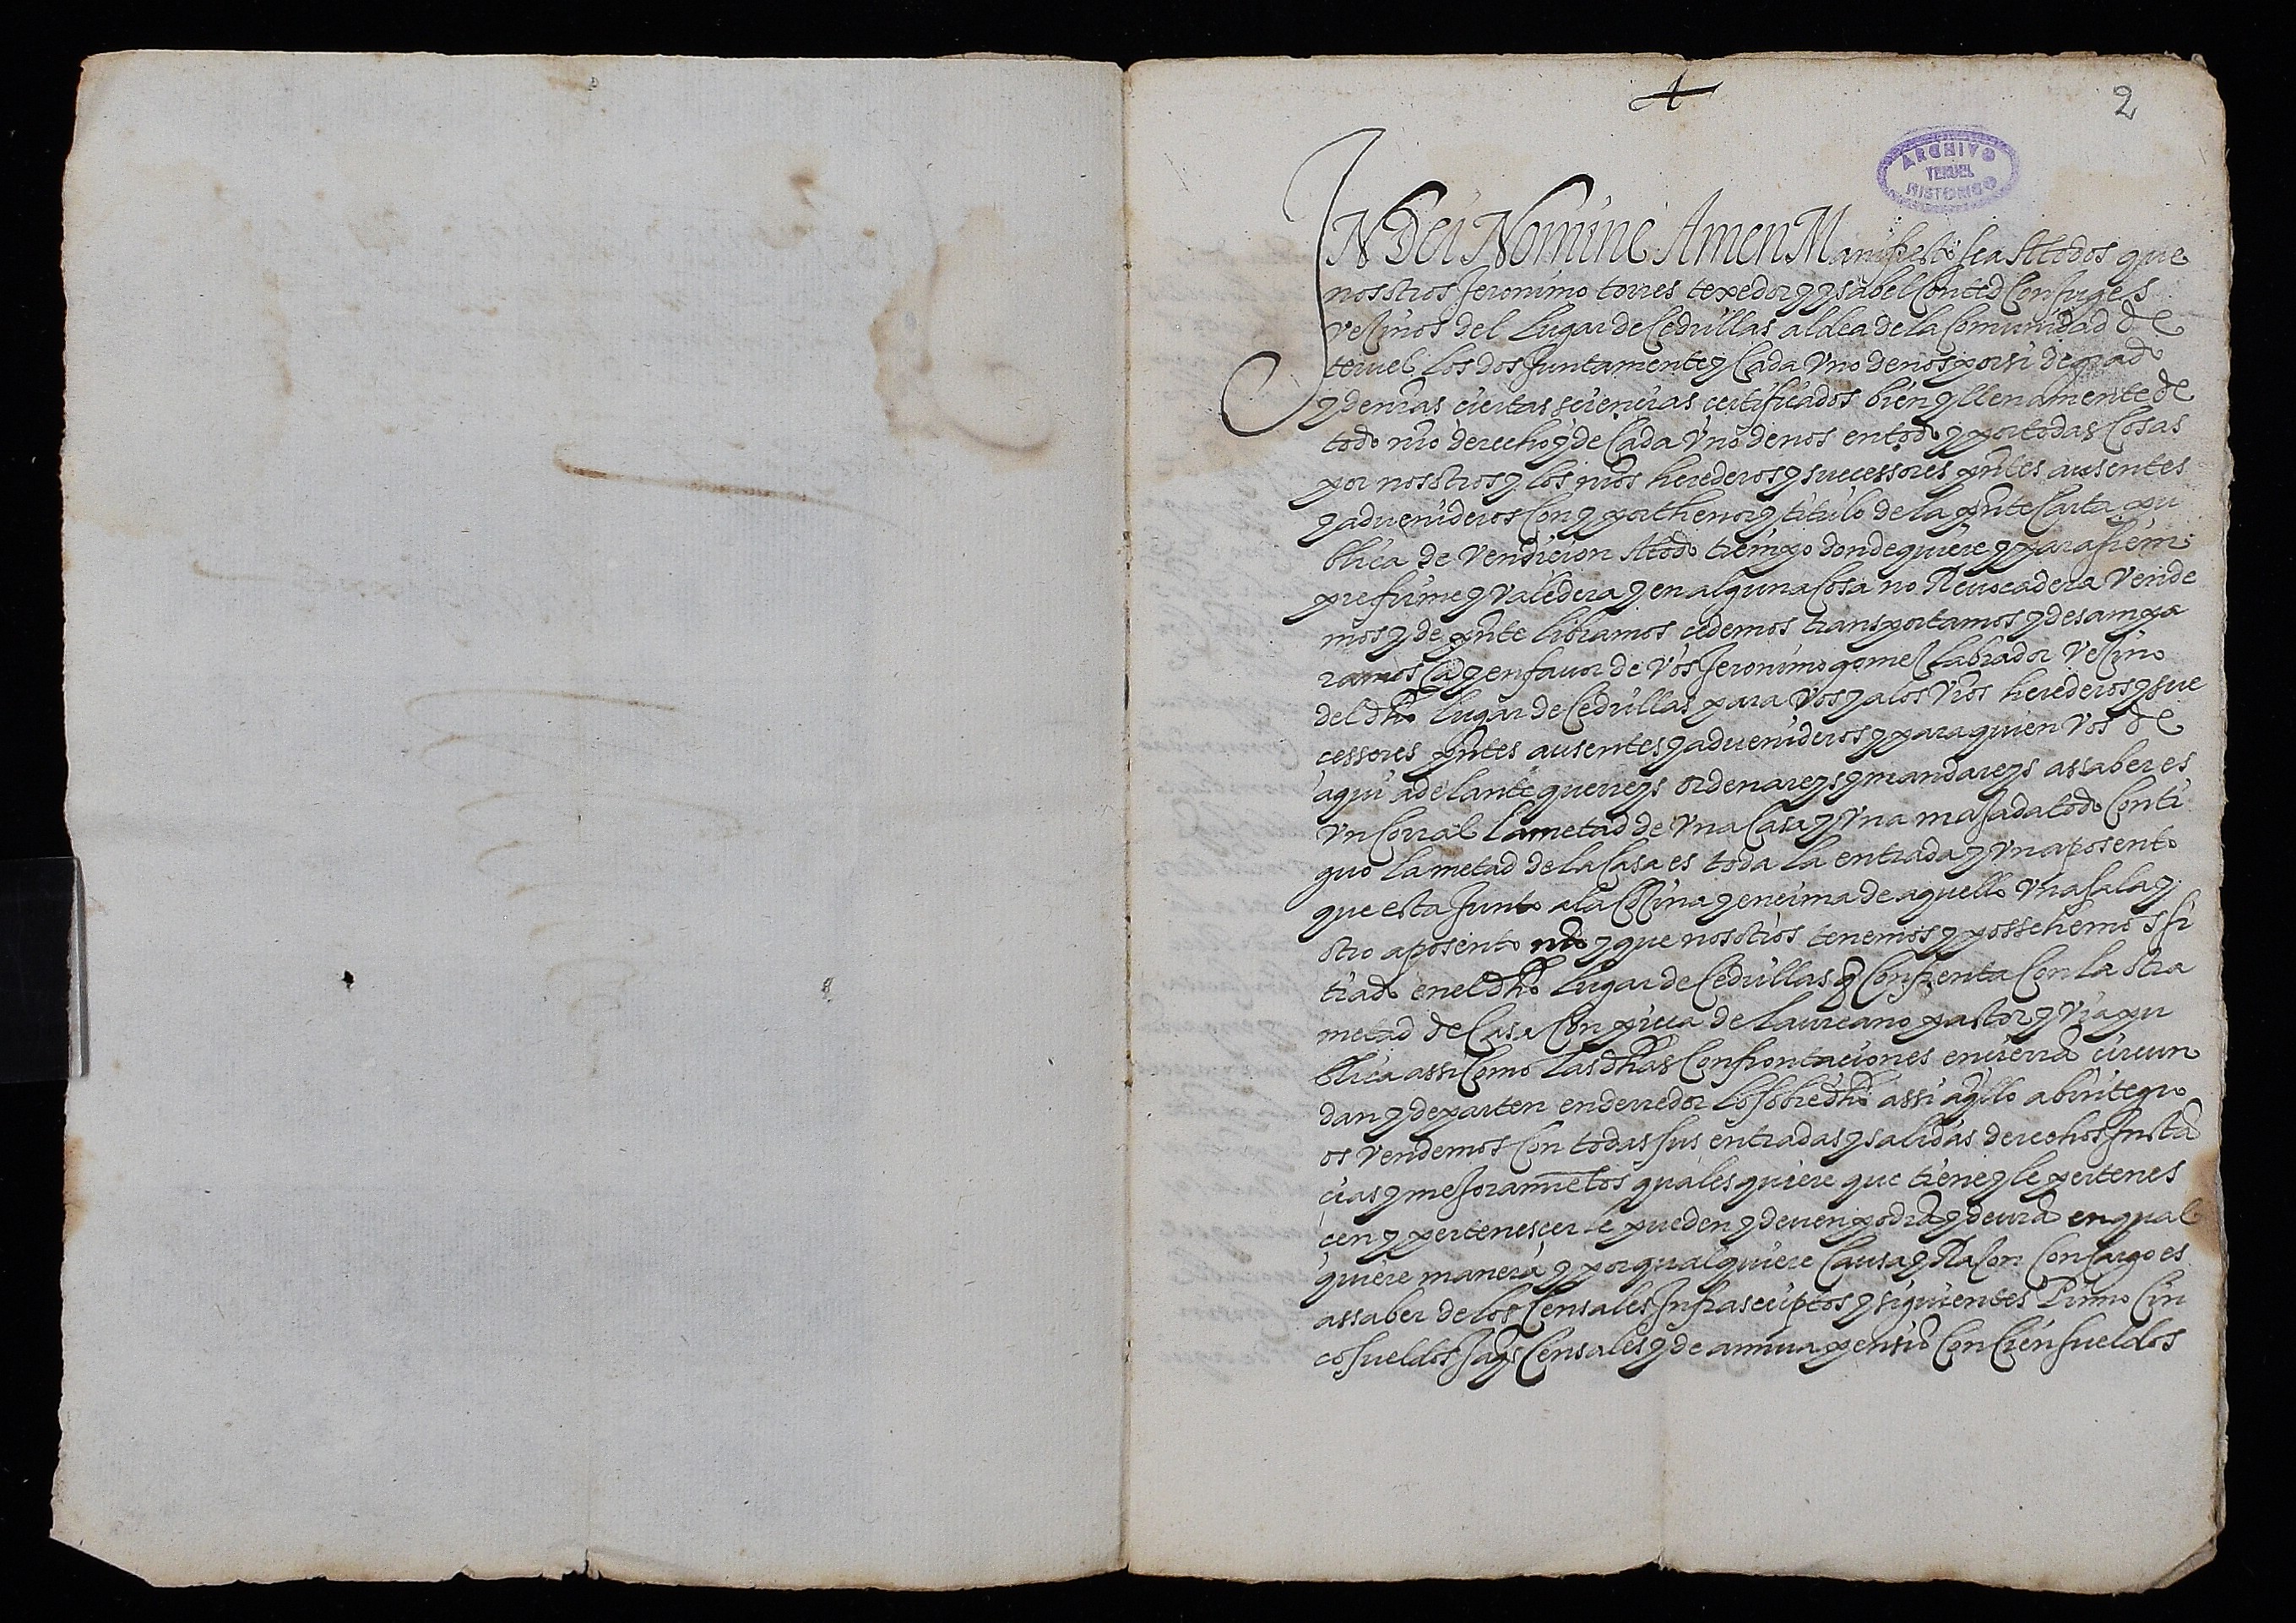 2
ARCHIVO
TERUEL
HISTORICO
IN Dei Nomine Amen Manifiesto sea A todos que
nosotros Jeronimo torres texedor y ysabel Conted Conjuges
vezinos del Lugar de Cedrillas aldea de la Comunidad de
teruel los dos Juntamente y Cada Vno de nos por si de grado
y de nras ciertas sciencias certificados bien y llenamente de
todo nro derecho y de Cada Vno de nos en todo y por todas Cosas
por nosotros y los nros herederos y successores pntes ausentes
y aduenideros Con y por thenor y titulo de la pnte Carta pu
blica de Vendicion A todo tiempo dondequiere y para siem
pre firme y Valedera y en alguna Cosa no Reuocadera Vende
mos y de pnte libramos cedemos transportamos y desampa
ramos a y en fauor de Vos Jeronimo gomez labrador Vezino
del dho lugar de Cedrillas para Vos y a los Vros herederos y suc
cessores pntes ausentes y aduenideros y para quien Vos de
aqui adelante querreys ordenareys y mandareys assaber es
Vn Corral la metad de Vna Casa y Vna masada todo Conti
guo la metad de la Casa es toda la entrada y Vn aposento
que esta Junto a la Cozina y encima de aquello Vna sala y
otro aposento nro y que nosotros tenemos y possehemos si
tiado en el dho lugar de Cedrillas q Confrenta Con la otra
metad de Casa Con pieca de laureano pastor y Via pu
blica assi Como las dhas Confrontaciones encierrā circun
dan y departen enderredor lo sobredho assi aqllo ab integro
os Vendemos Con todas sus entradas y salidas derechos Instā
cias y mejoramētos quales quiere que tiene y le pertenes
cen y pertenescer le pueden y deuen podrā y deurā en qual
quiere manera y por qualquiere Causa y Razon Con Cargo es
assaber de los Censales Infrascriptos y siguientes Primo Cin
co sueldos Jaqs Censales y de annua pensiō Con Cien sueldos